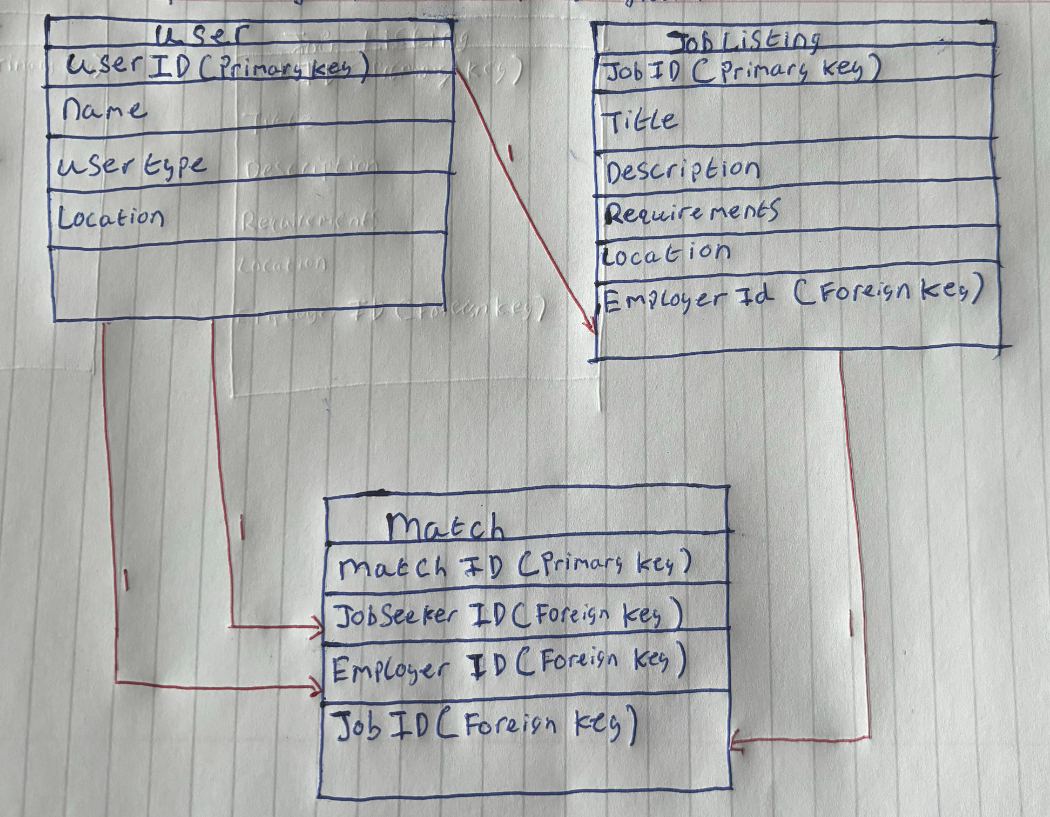 User
User ID (Primary key)
Name
User type
Location
Job Listing
Job ID (Primary key)
Title
Description
Requirements
Location
Employer Id (Foreign key)
1
1
1
1
Match
Match ID (Primary key)
JobSeeker ID (Foreign key)
Employer ID (Foreign key)
Job ID (Foreign key)